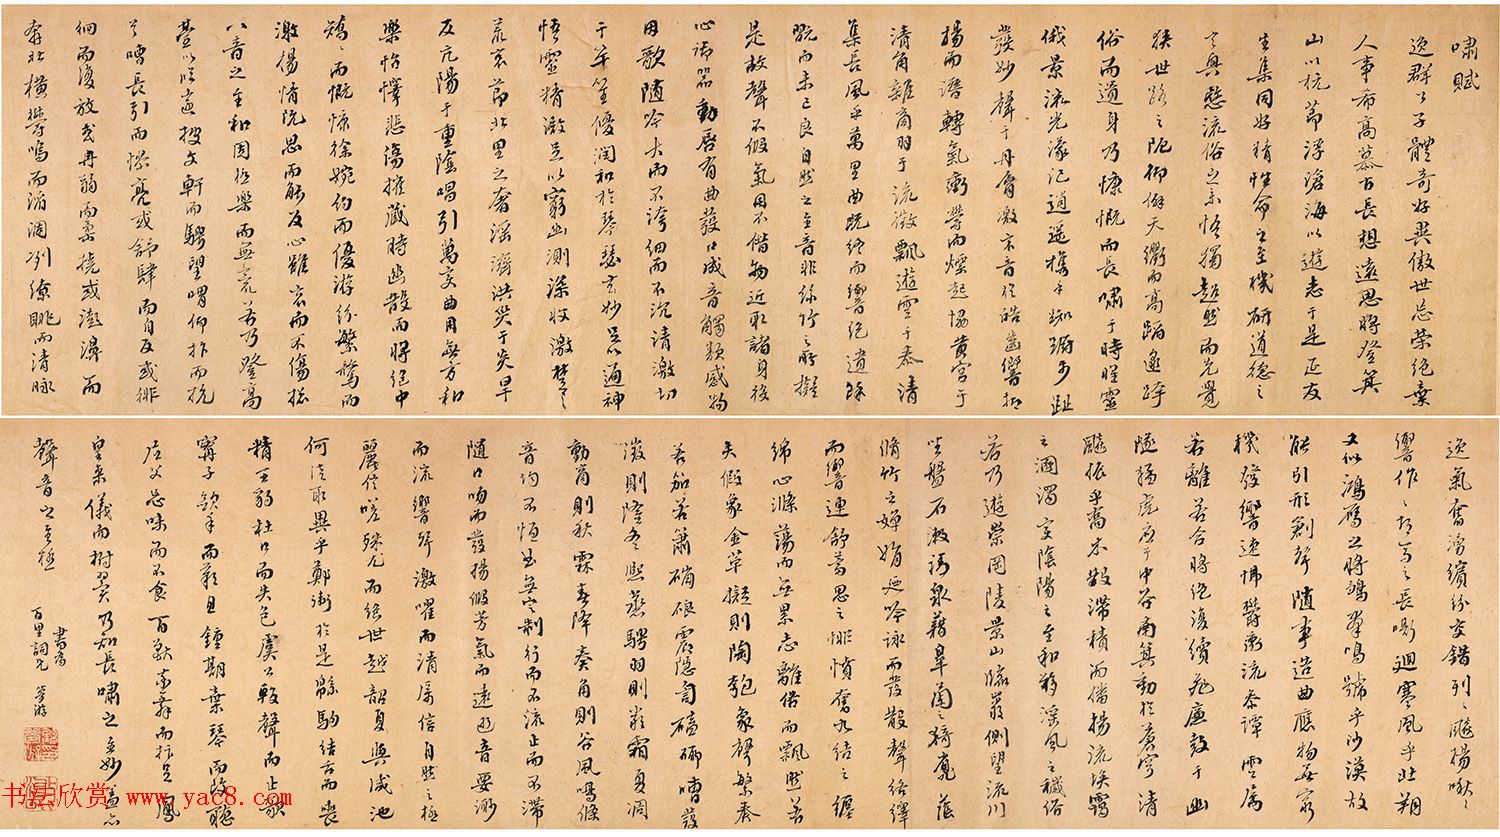 嘯賦
逸群公子體奇好異傲世忘榮絕棄
人事希高慕古長想遠思將登箕
山以抗節浮滄海以遊志于是延友
生集同好精性命之至機研道德之
玄奧愍流俗之未悟獨超然而先覺
狹世路之阨僻仰天衢而高蹈邈跨
俗而遺身乃慷慨而長嘯于時曜靈
俄景流光濛汜逍遙攜手踟跚步趾
發妙聲于丹脣激哀音於皓齒響抑
揚而潛轉氣衝鬱而熛起協黃宮于
清角雜商羽于流徵飄遊雲于泰清
集長風乎萬里曲既終而響絕遺餘
玩而未已良自然之至音非絲竹之所擬
是故聲不假氣用不借物近取諸身役
心御器動唇有曲發口成音觸類感物
因歌隨吟大而不誇細而不沉清激切
于竽笙優潤和於琴瑟玄妙足以通神
悟靈精微足以窮幽測深收激楚之
荒哀節北里之奢淫濟洪災于炎旱
反亢陽于重陰唱引萬變曲用無方和
樂怡懌悲傷摧藏時幽散而將絕中
矯矯而慨慷徐婉約而優游紛繁騖而
激揚情既思而能反心雖哀而不傷總
八音之至和固極樂而無荒若乃登高
臺以臨遠披文軒而騁望喟仰抃而抗
首嘈長引而憀亮或舒肆而自反或徘
徊而復放或冉弱而柔撓或澎濞而
奔壯橫鬱鳴而滔涸冽繚眺而清昶
逸氣奮湧繽紛交錯列列飈揚啾啾
響作奏胡馬之長嘶迴寒風乎北朔
又似鴻雁之將鶵羣鳴號乎沙漠故
能引形創聲隨事造曲應物無窮
機發響速怫鬱衝流參譚雲屬
若離若合將絕復續飛廉鼓于幽
隧猛虎應于中谷南箕動於穹蒼清
飈振乎喬木散滯積而播揚流埃藹
之溷濁變陰陽之至和移淫風之穢俗
若乃遊崇岡陵景山臨巖側望流川
坐盤石漱清泉藉皋蘭之猗靡蔭
脩竹之嬋娟迺吟詠而發散聲絡繹
而響連舒蓄思之悱憤奮久結之纏
綿心滌蕩而無累志離俗而飄然若
夫假象金革擬則陶匏象聲繁奏
若笳若簫磞硠震隱訇磕𠾴嘈發
徵則隆冬熙蒸騁羽則嚴霜夏凋
動商則秋霖春降奏角則谷風鳴條
音均不恒曲無定制行而不流止而不滯
隨口吻而發揚假芳氣而遠逝音要妙
而流響聲激嚁而清厲信自然之極
麗信嗟殊尤而絕世越韶夏與咸池
何徒取異乎鄭衛於是緜駒結舌而喪
精王豹杜口而失色虞公輟聲而止歌
甯子斂手而歎息鍾期棄琴而改聽
尼父忘味而不食百獸率舞而抃足鳳
皇來儀而拊翼乃知長嘯之奇妙蓋亦
聲音之至極
書為
百里詞兄
書法欣賞 www.yac8.com